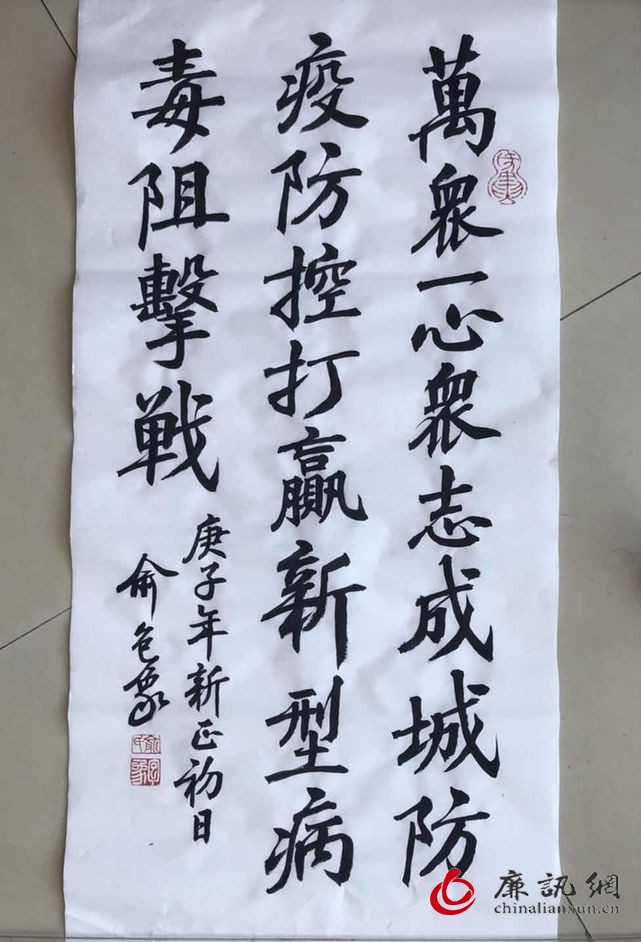 萬衆一心衆志成城防
疫防控打贏新型病
毒阻擊戦
庚子年新正初日
俞包象
廉訊網
chinalianxun.cn